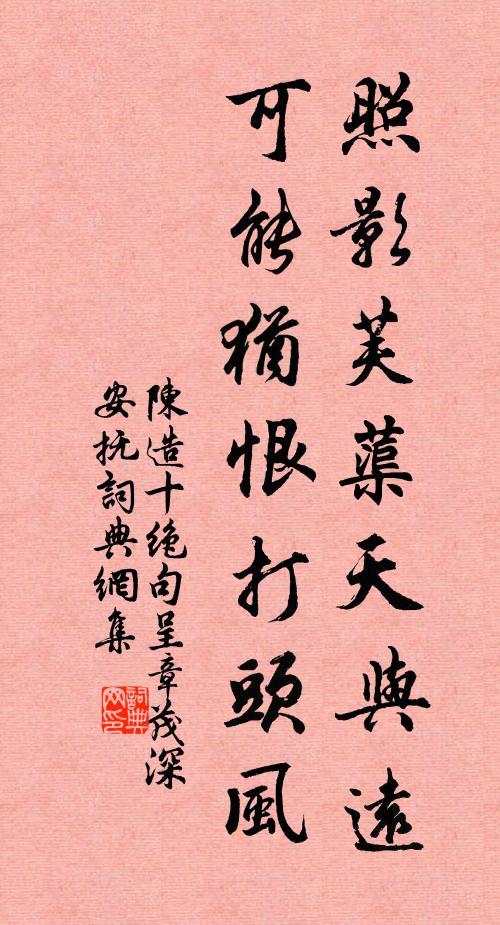 照影芙蕖天與遠
可能猶恨打頭風
陳造十絕句呈章茂深
安撫詞典網集
詞典網印